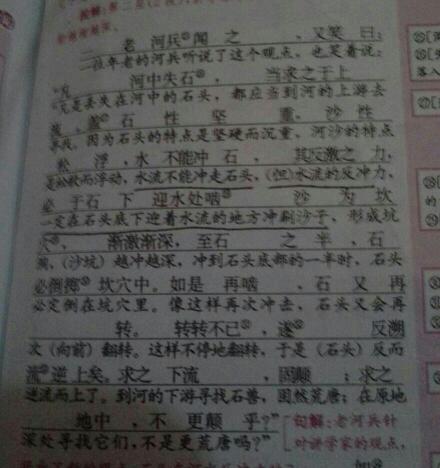 二 老 河兵 闻 之 , 又笑 曰:
一位年老的河兵听说了这个观点, 也笑着说:
“凡 河中失石 , 当求之于上
“凡是丢失在河中的石头, 都应当到河的上游去
流 。盖 石 性 坚 重, 沙 性
寻找。因为石头的特点是坚硬而沉重, 河沙的特点
松 浮 , 水 不能冲 石 , 其反激之 力,
是松软而浮动, 水流不能冲走石头, (但)水流的反冲力,
必 于石 下 迎水处啮 沙 为 坎
一定在石头底下迎着水流的地方冲刷沙子, 形成坑
穴 , 渐激渐深, 至石 之 半 , 石
洞, (沙坑) 越冲越深, 冲到石头底部的一半时, 石头
必倒掷 坎穴中。如是 再啮 , 石 又 再
必定倒在坑穴里。像这样再次冲击, 石头又会再
转。 转转不已 , 遂 反溯
次 (向前) 翻转。这样不停地翻转, 于是 (石头) 反而
流 逆上矣。求之 下流 , 固颠 ; 求之
逆流而上了。到河的下游寻找石兽, 固然荒唐; 在原地
地中 , 不 更颠 乎?”
深处寻找它们, 不是更荒唐吗?”
句解: 老河兵针
对讲学家的观点,